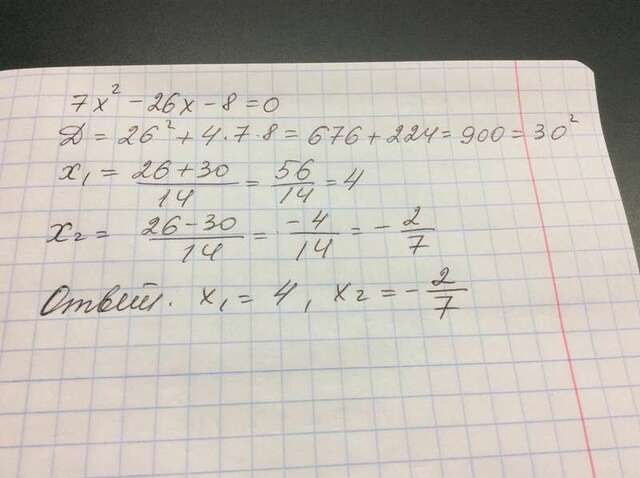 7x² − 26x − 8 = 0
Д = 26² + 4 · 7 · 8 = 676 + 224 = 900 = 30²
x₁ = (26 + 30)/14 = 56/14 = 4
x₂ = (26 − 30)/14 = −4/14 = −2/7
Ответ. x₁ = 4, x₂ = −2/7